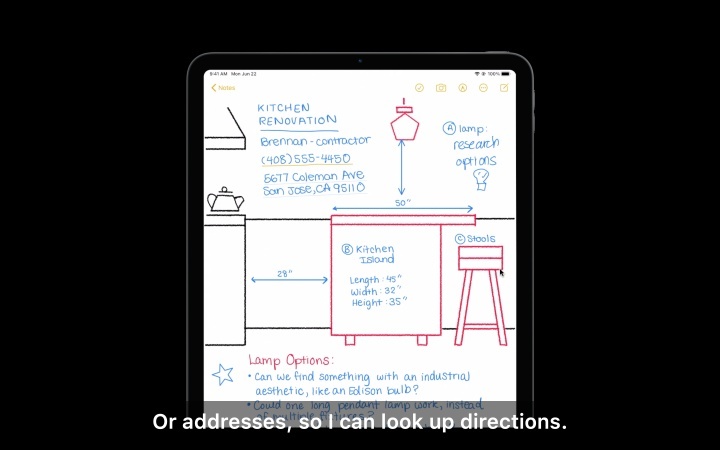 9:41 AM Mon Jun 22
100%
Notes
KITCHEN
RENOVATION
Brennan - contractor
(408) 555-4450
5677 Coleman Ave
San Jose, CA 95110
A lamp:
research
options
50"
28"
B Kitchen
Island
Length: 45"
Width: 32"
Height: 35"
C Stools
Lamp Options:
• Can we find something with an industrial
aesthetic, like an Edison bulb?
• Could one long pendant lamp work, instead
of multiple fixtures?
Or addresses, so I can look up directions.